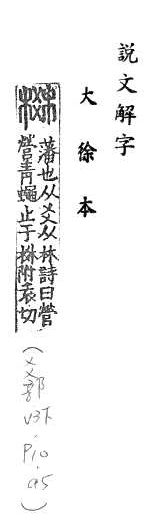 説文解字
大徐本
棥
藩也从爻从林詩曰營
營青蠅止于棥附袁切
(爻部
V3下
.
P10
.
a5)